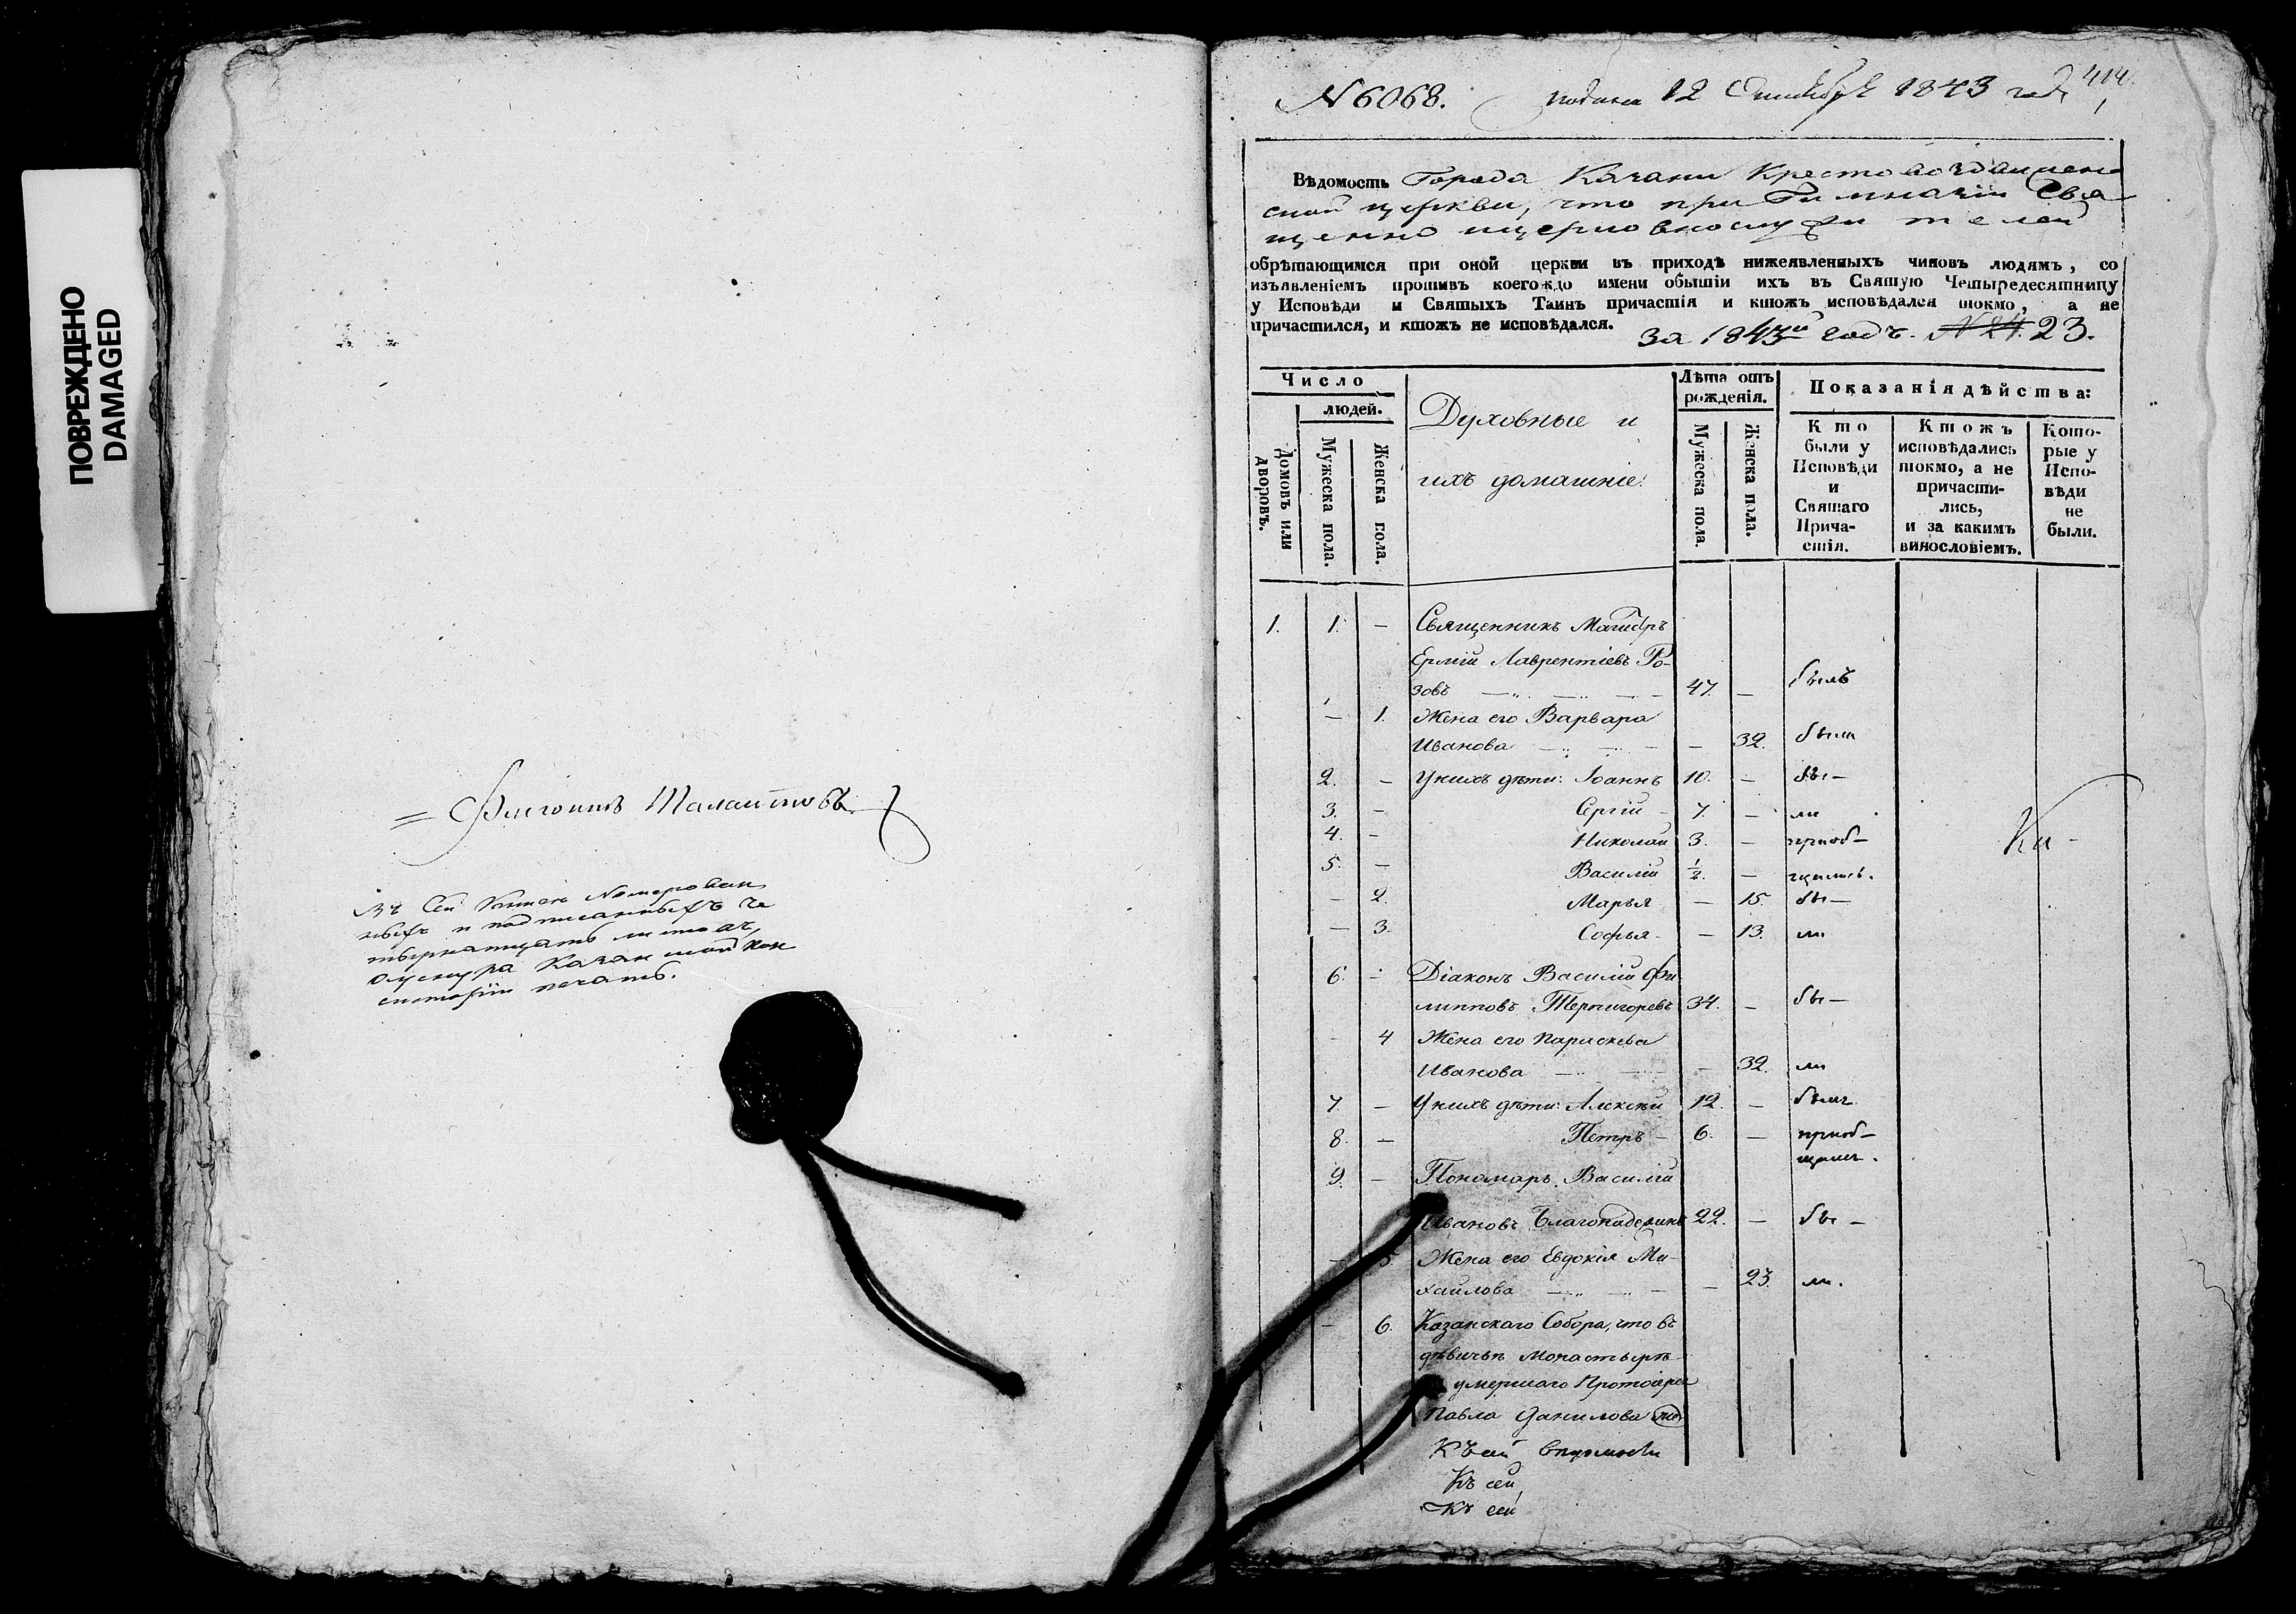 ПОВРЕЖДЕНО
DAMAGED
= Филиппъ Талантовъ
Въ сей книгѣ номерован
ныхъ и подписанныхъ че
тырнатцать листовъ,
у шнура Казанской кон
систоріи печать.
N 6068. подана 12 Октября 1843 года 414.
Вѣдомость Города Казани Крестовоздвижен
ской церкви, что при Гимназіи Свя
щенно и церковнослужителей
обрѣтающимся при оной церкви въ приходѣ нижеявленныхъ чиновъ людямъ, со
изъявленіемъ противъ коегождо имени обытіи ихъ въ Святую Четыредесятницу
у Исповѣди и Святыхъ Таинъ причастія и ктожъ исповѣдался токмо, а не
причастился, и ктожъ не исповѣдался. За 1843й годъ. N 24. 23.
Число людей.
Домовъ или дворовъ.
Мужеска пола.
Женска пола.
Духовные и
ихъ домашніе:
Лѣта отъ рожденія.
Мужеска пола.
Женска пола.
Показанія дѣйства:
Кто были у Исповѣди и Святаго Причастія.
Ктожъ исповѣдались токмо, а не причастились, и за какимъ винословіемъ.
Которые у Исповѣди не были.
1. 1. — Священникъ Магистръ
Ермій Лаврентіевъ Ро-
зовъ 47. — былъ
— 1. Жена его Варвара
Иванова — 32. была
2. — У нихъ дѣти: Іоаннъ 10. — бы—
3. — Сергій 7. — ли
4. — Николай 3. — приоб—
5. — Василій ½. — щились.
— 2. Марья — 15. бы—
— 3. Софья — 13. ли
6. — Діаконъ Василій Фи
липповъ Терпигоревъ 34. — бы—
4 Жена его Параскева
Иванова — 32. ли
7. — У нихъ дѣти: Алексѣй 12. — были
8. — Петръ 6. — приоб—
щились.
9. — Пономарь Василій
Ивановъ 22. — бы—
— 5. Жена его Евдокія Ми-
хайлова — 23. ли.
— 6. Казанскаго Собора, что въ
дѣвичьѣ монастырѣ
умершаго Протоіерея
Павла Данилова
Къ сей вѣдомости
Къ сей
Къ сей